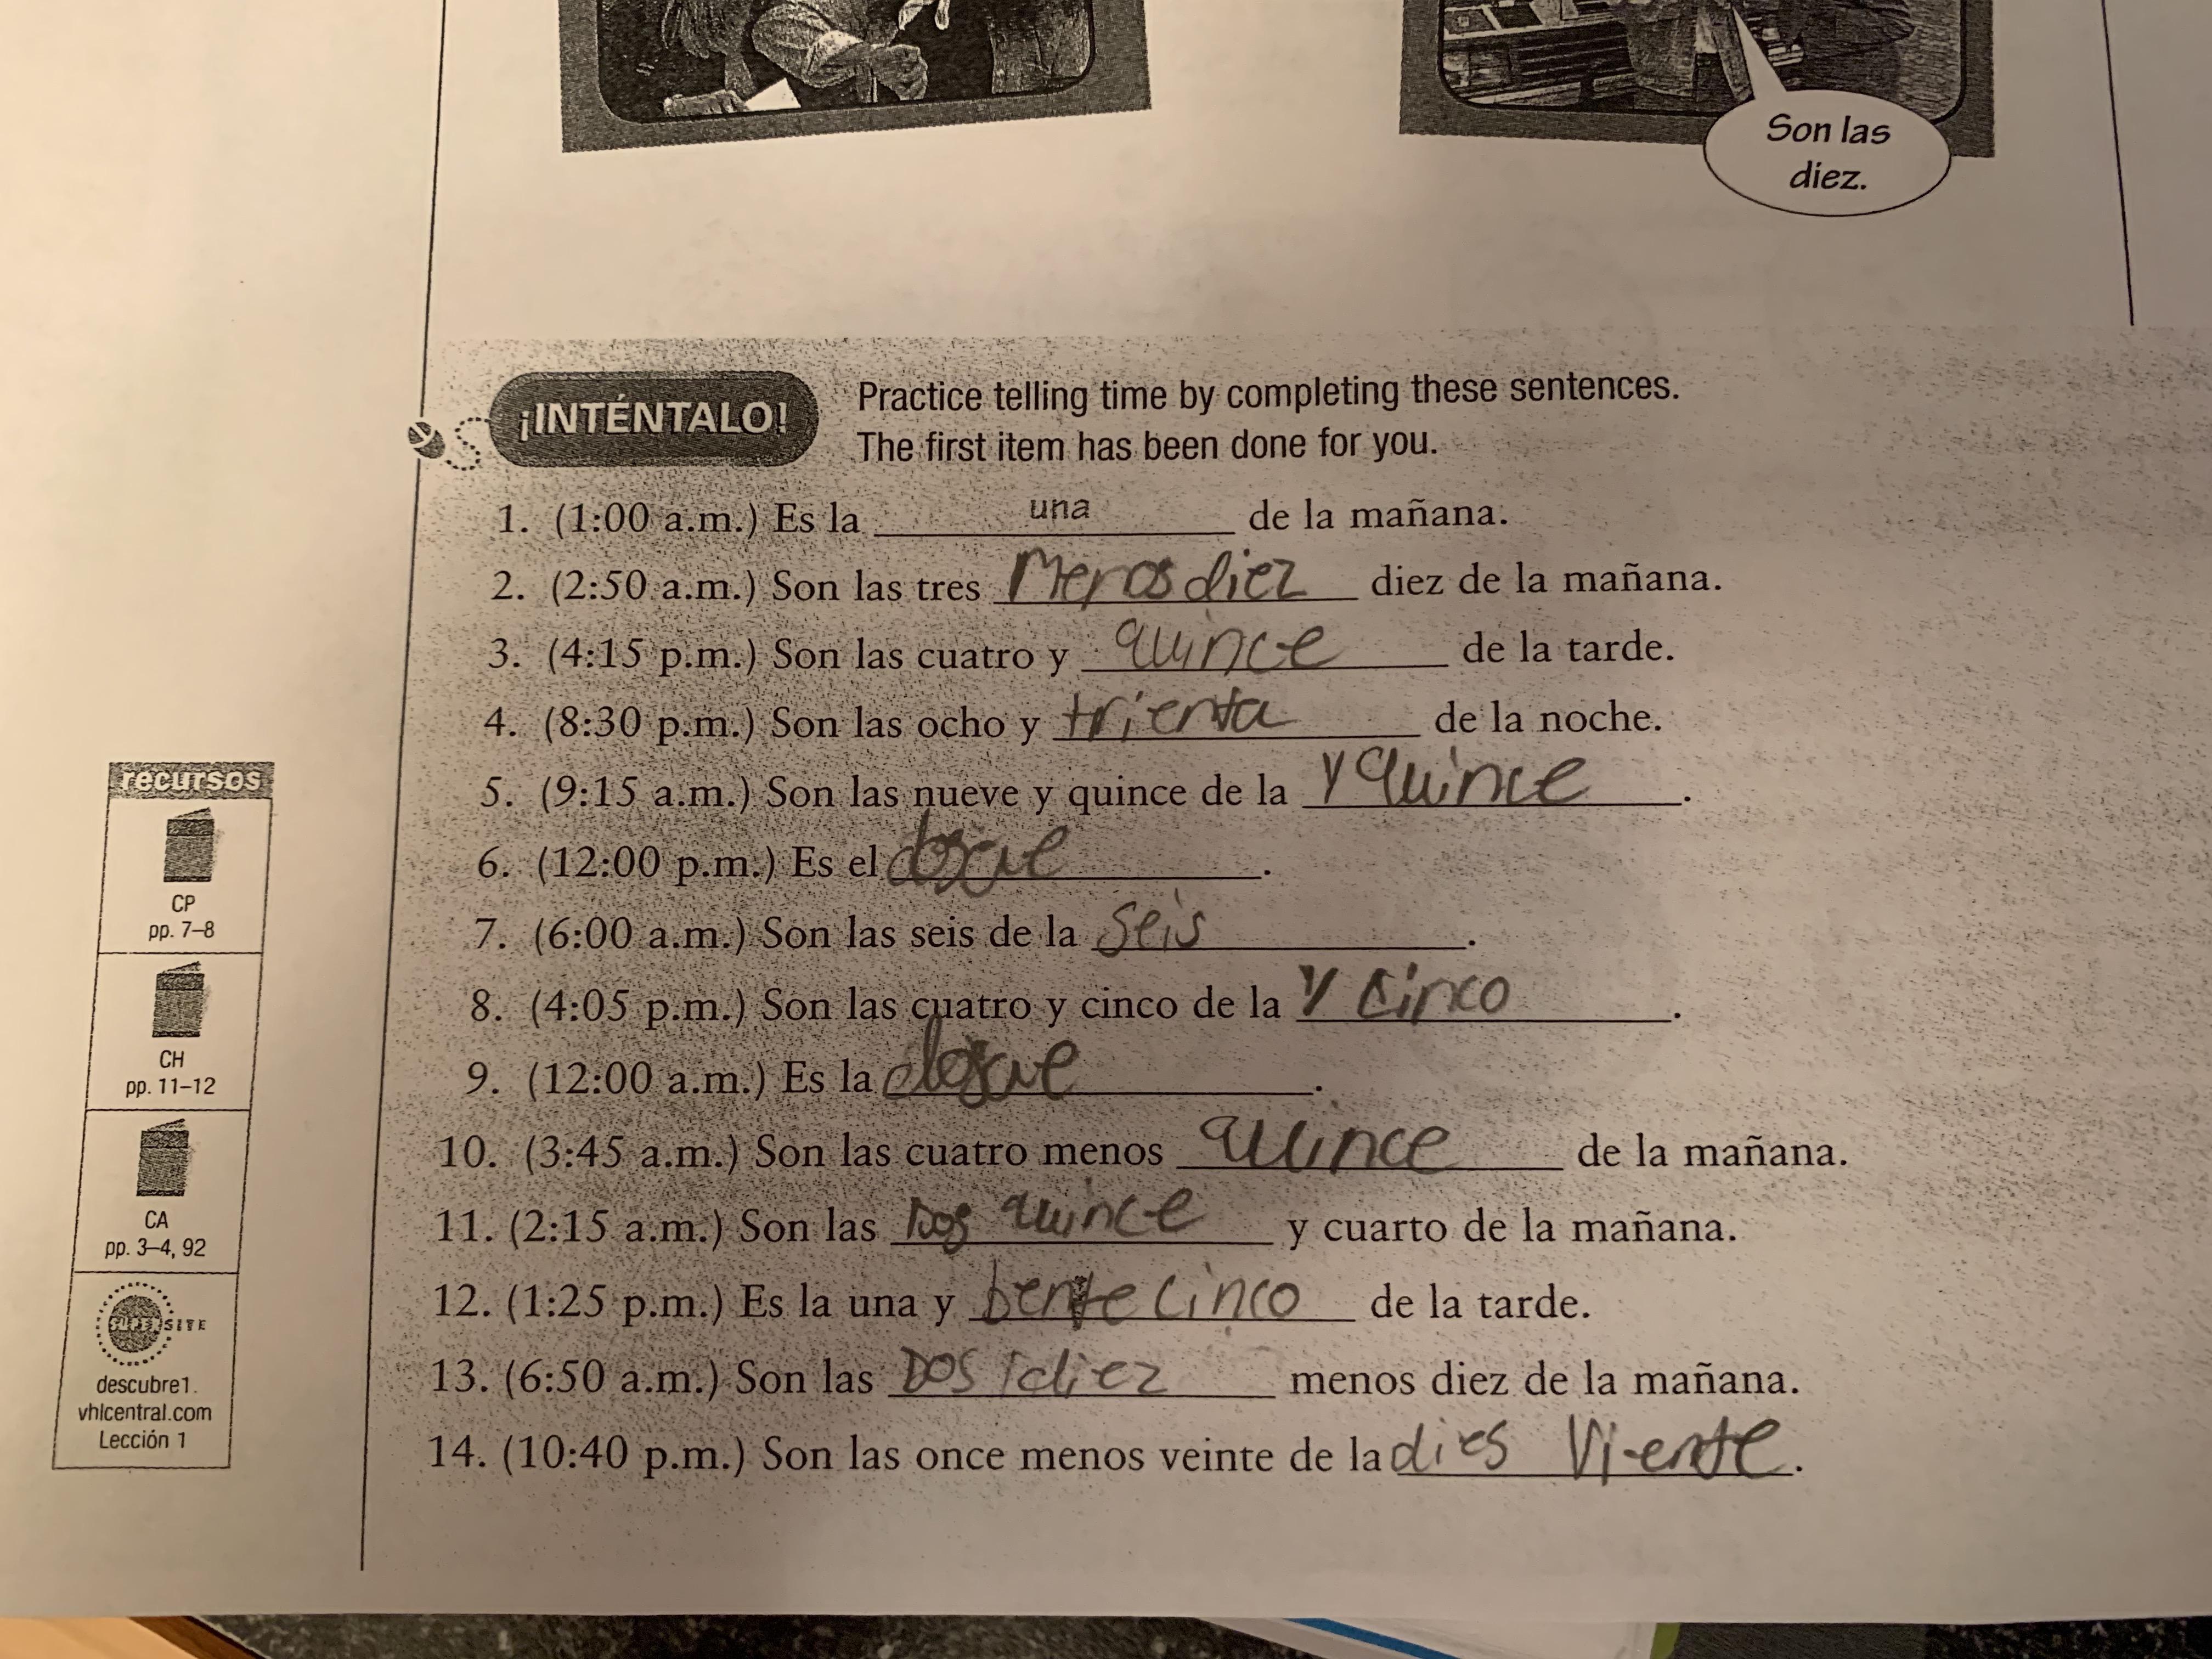 Son las
diez.
¡INTÉNTALO!
Practice telling time by completing these sentences.
The first item has been done for you.
1. (1:00 a.m.) Es la una de la mañana.
2. (2:50 a.m.) Son las tres Menos diez diez de la mañana.
3. (4:15 p.m.) Son las cuatro y quince de la tarde.
4. (8:30 p.m.) Son las ocho y trienta de la noche.
5. (9:15 a.m.) Son las nueve y quince de la y quince.
6. (12:00 p.m.) Es el .
7. (6:00 a.m.) Son las seis de la seis.
8. (4:05 p.m.) Son las cuatro y cinco de la y cinco.
9. (12:00 a.m.) Es la .
10. (3:45 a.m.) Son las cuatro menos quince de la mañana.
11. (2:15 a.m.) Son las Dos quince y cuarto de la mañana.
12. (1:25 p.m.) Es la una y bente cinco de la tarde.
13. (6:50 a.m.) Son las Dos menos diez de la mañana.
14. (10:40 p.m.) Son las once menos veinte de la dies Viente.
recursos
CP
pp. 7–8
CH
pp. 11–12
CA
pp. 3–4, 92
SUPERSITE
descubre1.
vhlcentral.com
Lección 1